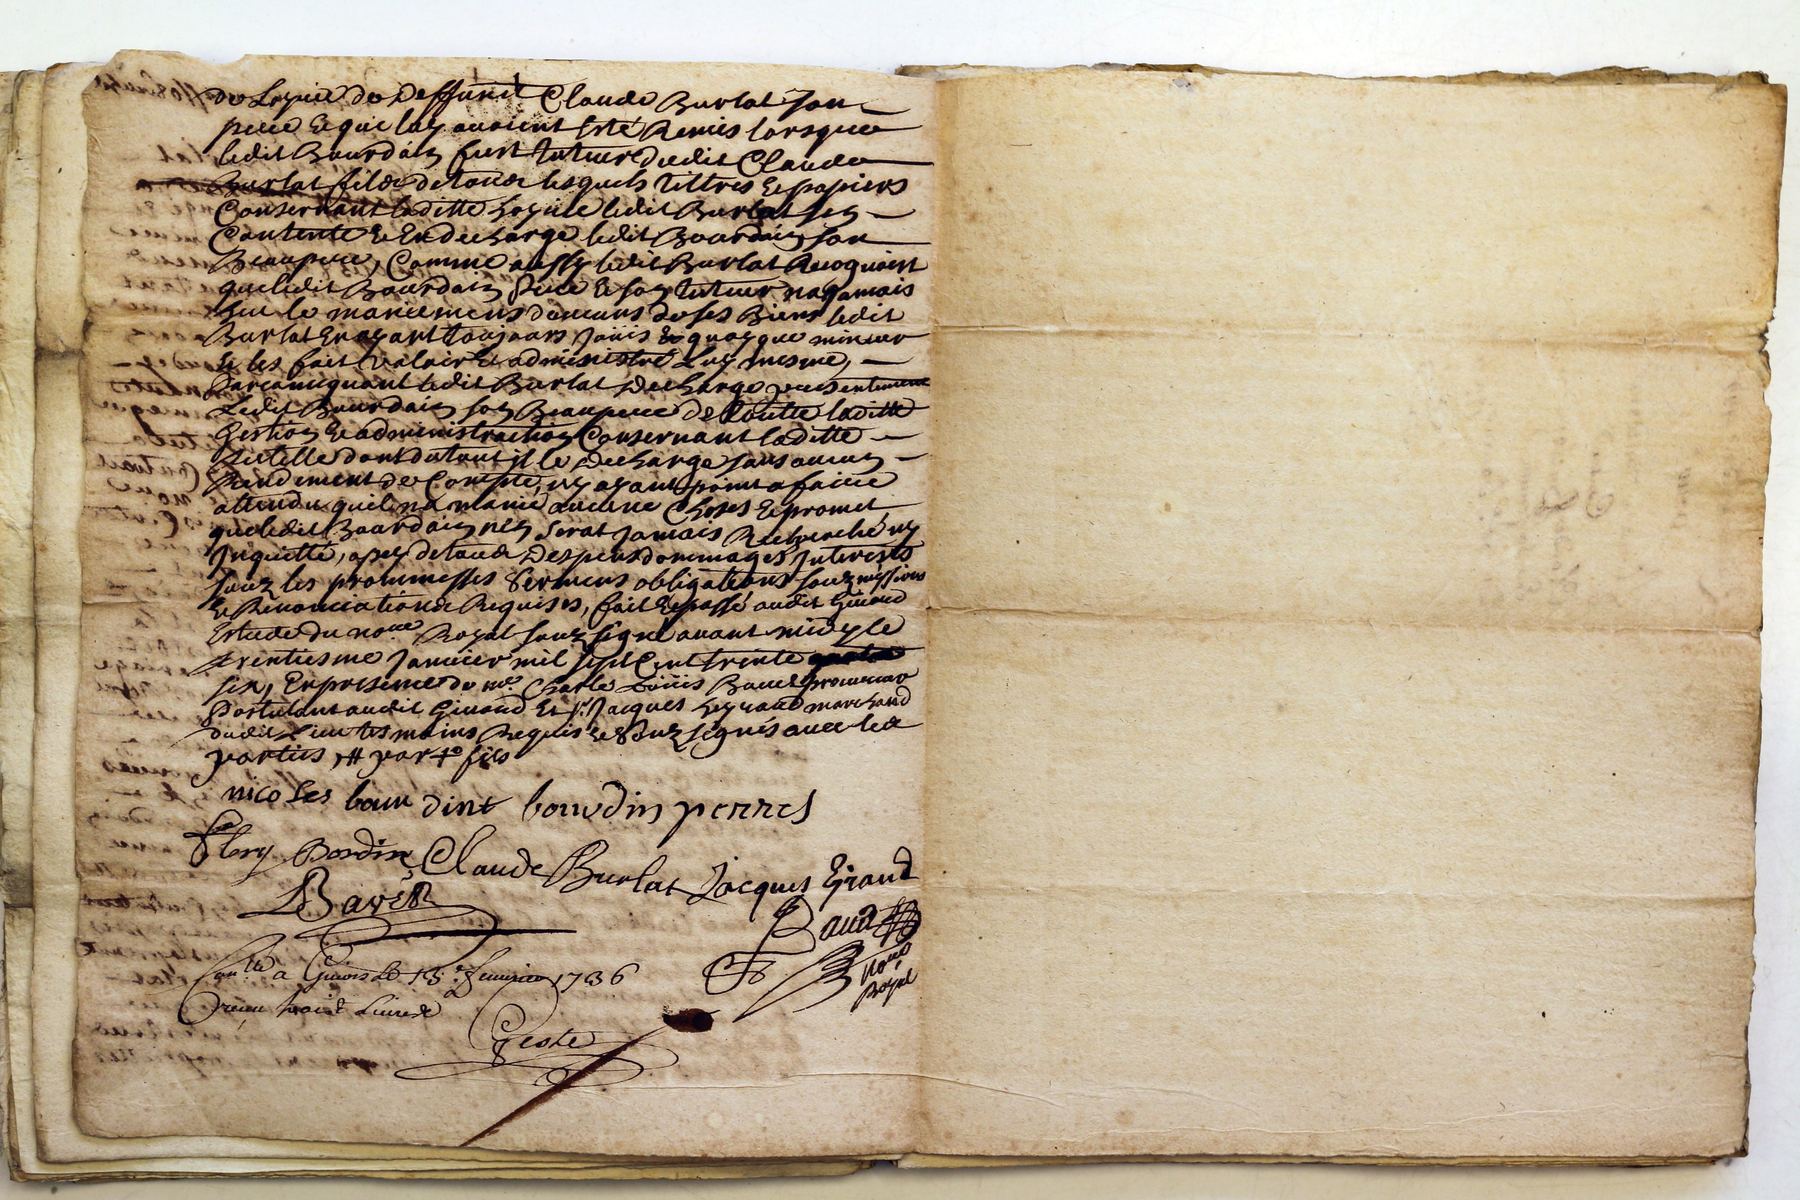 de Loyrie de Deffunct Claude Burlat son
pere & qui luy avoient Esté Remis lorsque
ledit Bourdain fust tuteur dudit Claude
Burlat fils de tous lesquels tiltres & papiers
Consernant laditte hoyrie ledit Burlat sen
Contente & En decharge ledit Bourdain son
Beaupere, Comme aussy ledit Burlat Recognoist
que ledit Bourdain Pere & son tuteur na jamais
Eut le maniemens daucuns de ses Biens ledit
Burlat En ayant toujours Joüis & quoyque mineur
& les fait Valoir & administré Luy mesme,
Parcainsquant ledit Burlat Decharge presentement
Ledit Bourdain son Beaupere de toutte laditte
Gestion & administration Consernant laditte
tutelle dont du tout il le Decharge sans aucun
Rendement de Compte, ny ayant point a faire
attendu quil na manié aucune Choses & promet
que ledit Bourdain nen serat Jamais Recherché ny
Inquietté, a peyne de tous Despens dommages Interests
souz les prommesses sermens obligations souzmissions
& Renonciations Requises, fait & passé audit Givord
Estude du no.re Royal souzsigné avant midy le
trentiesme Janvier mil sept Cent trente
six, En presence de m.e Charle Loüis Bavet procureur
Postulant audit Givord Et s.r Jacques Giraud marchand
dudit Lieu tesmoins Requis & souzsignés avec les
parties,
nicolas bour dint bourdin perres
Flery Bordin Claude Burlat Jacques Giraud
Bavet
Baud
no.re
Royal
Con.llé a Givors Le 13.e fevrier 1736
Receu trois Livres
Geste